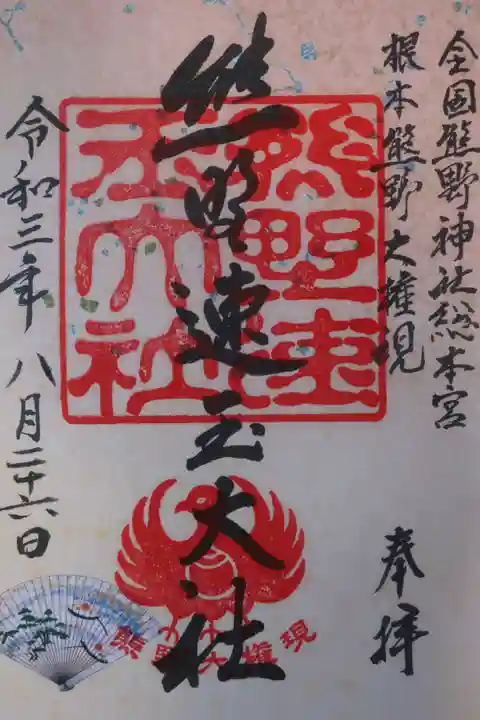 全国熊野神社総本宮
根本熊野大権現
奉拝
熊野速玉大社
熊野速玉大社
令和三年八月二十六日
熊野大権現